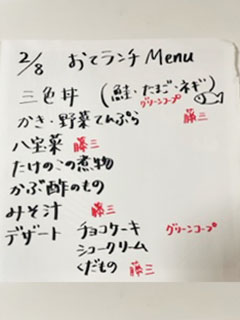 2/8 おてランチ Menu
三色丼 (鮭・たまご・ネギ)
グリーンコープ
かき・野菜てんぷら 藤三
八宝菜 藤三
たけのこの煮物
かぶ酢のもの
みそ汁 藤三
デザート チョコケーキ グリーンコープ
シュークリーム
くだもの 藤三